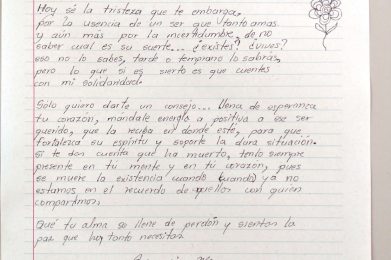 Hoy sé la tristeza que te embarga.
por la usencia de un ser que tanto amas
y aún más por la incertidumbre, de no
saber cual es su suerte... ¿existes? ¿vives?
eso no lo sabes, tarde o temprano lo sabrás,
pero lo que si es sierto es que cuentas
con mi solidaridad.
Solo quiero darte un consejo... llena de esperanza
tu corazón, mandale energía positiva a ese ser
querido, que la reciba en donde esté, para que
fortalezca su espíritu y soporte la dura situación.
si te dan cuenta qué ha muerto, tenlo siempre
presente en tu mente y en tu corazón, pues
se muere la existencia cuando (cuando) ya no
estamos en el recuerdo de aquellos con quien
compartimos,
Qué tu alma se llene de perdón y sientas la
paz que hoy tanto necesitas